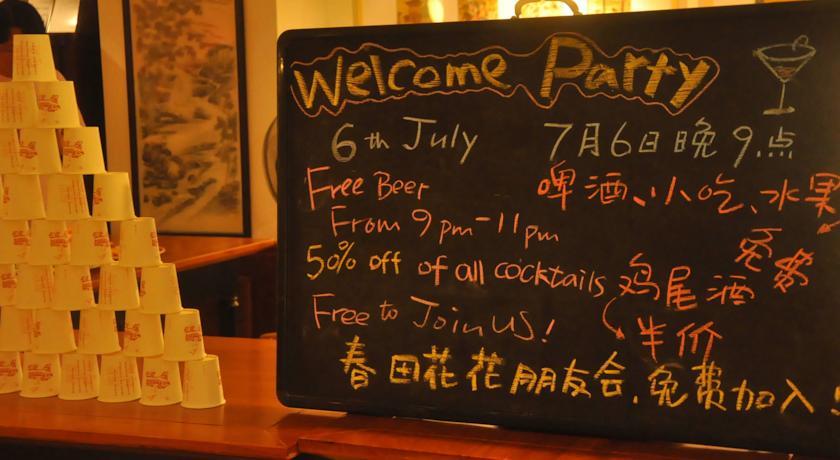 Welcome Party
6th July 7月6日晚9点
Free Beer 啤酒、小吃、水果
From 9pm-11pm 免费
50% off of all cocktails 鸡尾酒
Free to Join US! 半价
春田花花朋友会,免费加入!